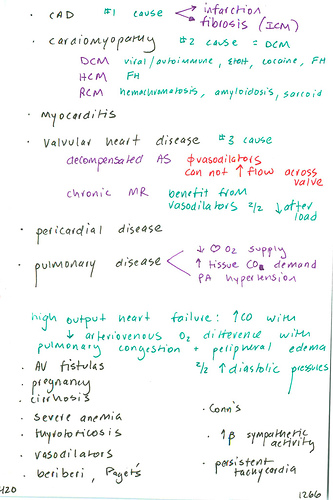 · CAD #1 cause → infarction
→ fibrosis (ICM)
· cardiomyopathy #2 cause = DCM
DCM viral/autoimmune, EtOH, cocaine, FH
HCM FH
RCM hemochromatosis, amyloidosis, sarcoid
· myocarditis
· valvular heart disease #3 cause
decompensated AS φ vasodilators
can not ↑ flow across
valve
chronic MR benefit from
vasodilators 2/2 ↓ after
load
· pericardial disease
· pulmonary disease < ↓ ♡ O2 supply
↑ tissue CO demand
PA hypertension
high output heart failure: ↑CO with
↓ arteriovenous O2 difference with
pulmonary congestion + peripheral edema
2/2 ↑ diastolic pressures
· AV fistulas
· pregnancy
· cirrhosis
· severe anemia
· thyrotoxicosis
· vasodilators
· beriberi, Paget's
· Conn's
· ↑β sympathetic
activity
· persistent
tachycardia
420
1266